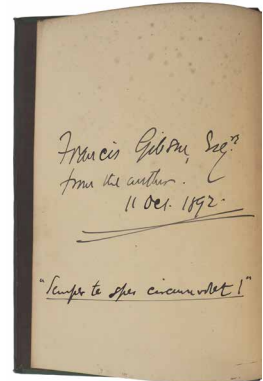 Francis Gibson, Esqre
from the author.
11 Oct. 1892.
"Semper te spes circumvolet!"